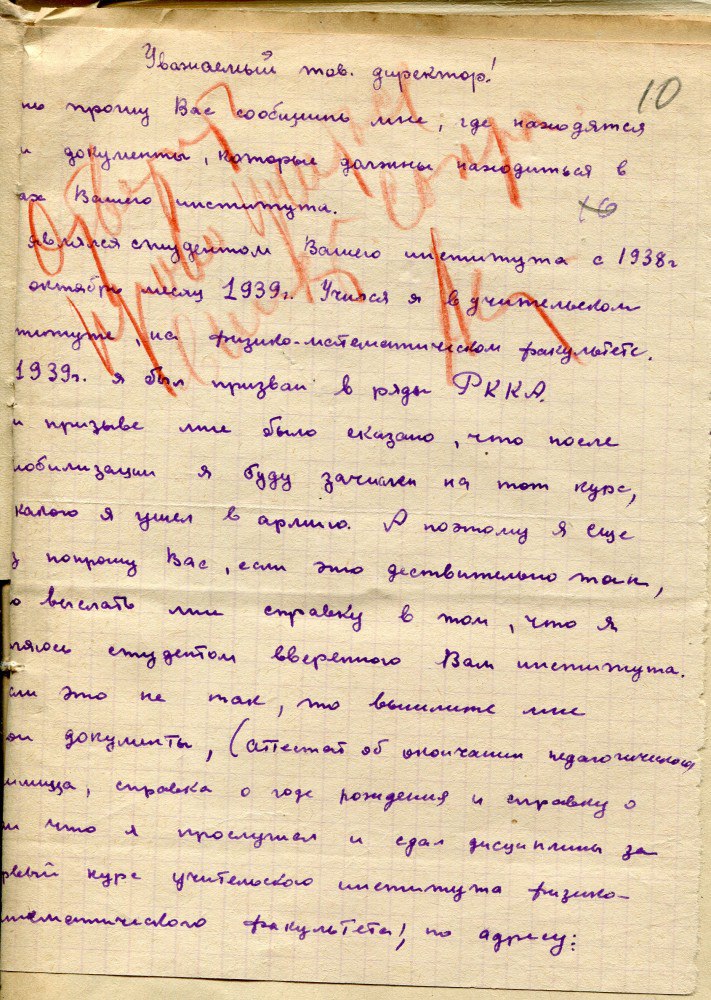 Уважаемый тов. директор!
10
но прошу Вас сообщить мне, где находятся
и документы, которые должны находиться в
ах Вашего института.
являлся студентом Вашего института с 1938г
октябрь месяц 1939г. Учился я в учительском
титуте, на физико-математическом факультете.
1939г. я был призван в ряды РККА.
и призыве мне было сказано, что после
мобилизации я буду зачислен на тот курс,
какого я ушел в армию. А поэтому я еще
з попрошу Вас, если это дествительно так,
о выслать мне справку в том, что я
ляюсь студентом вверенного Вам института.
сли это не так, то вышлите мне
ои документы, (аттестат об окончании педагогического
илища, справка о годе рождения и справку о
м что я прослушал и сдал дисциплины за
рвый курс учительского института физико-
тематического факультета), по адресу: